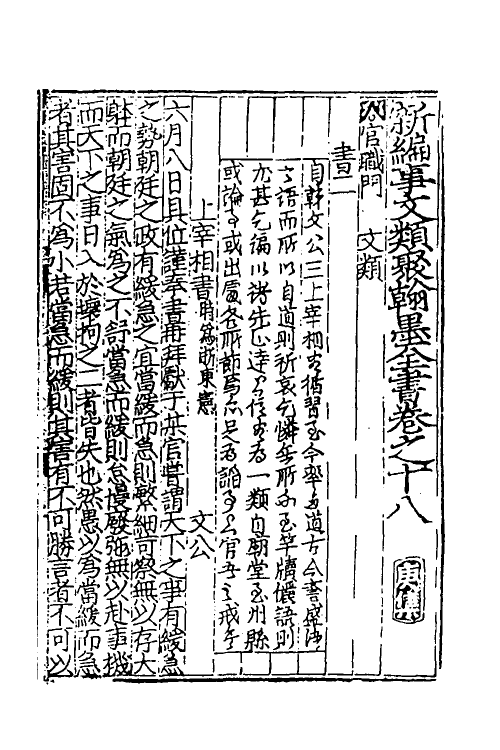 新編事文類聚翰墨全書卷之十八 庚集
官職門 文類
書一
自韓文公三上宰相書循習至今率多道古今書盛
之語而所以自道則祈哀乞憐無所不至竿牘儷語則
尤甚乞編以諸先正達官書為一類自朝堂至州縣
或論事或出處各有所節亦足為謟官者之戒云
上宰相書時為浙東憲 文公
六月八日具位謹奉書再拜獻于某官嘗謂天下之事有緩急
之勢朝廷之政有緩急之宜當緩而急則繁細苛察無以存大
體而朝廷之氣為之不舒當急而緩則怠慢廢弛無以赴事機
而天下之事日入於壞均之二者皆失也然愚以為當緩而急
者其害固不為小若當急而緩則其害有不可勝言者不可以